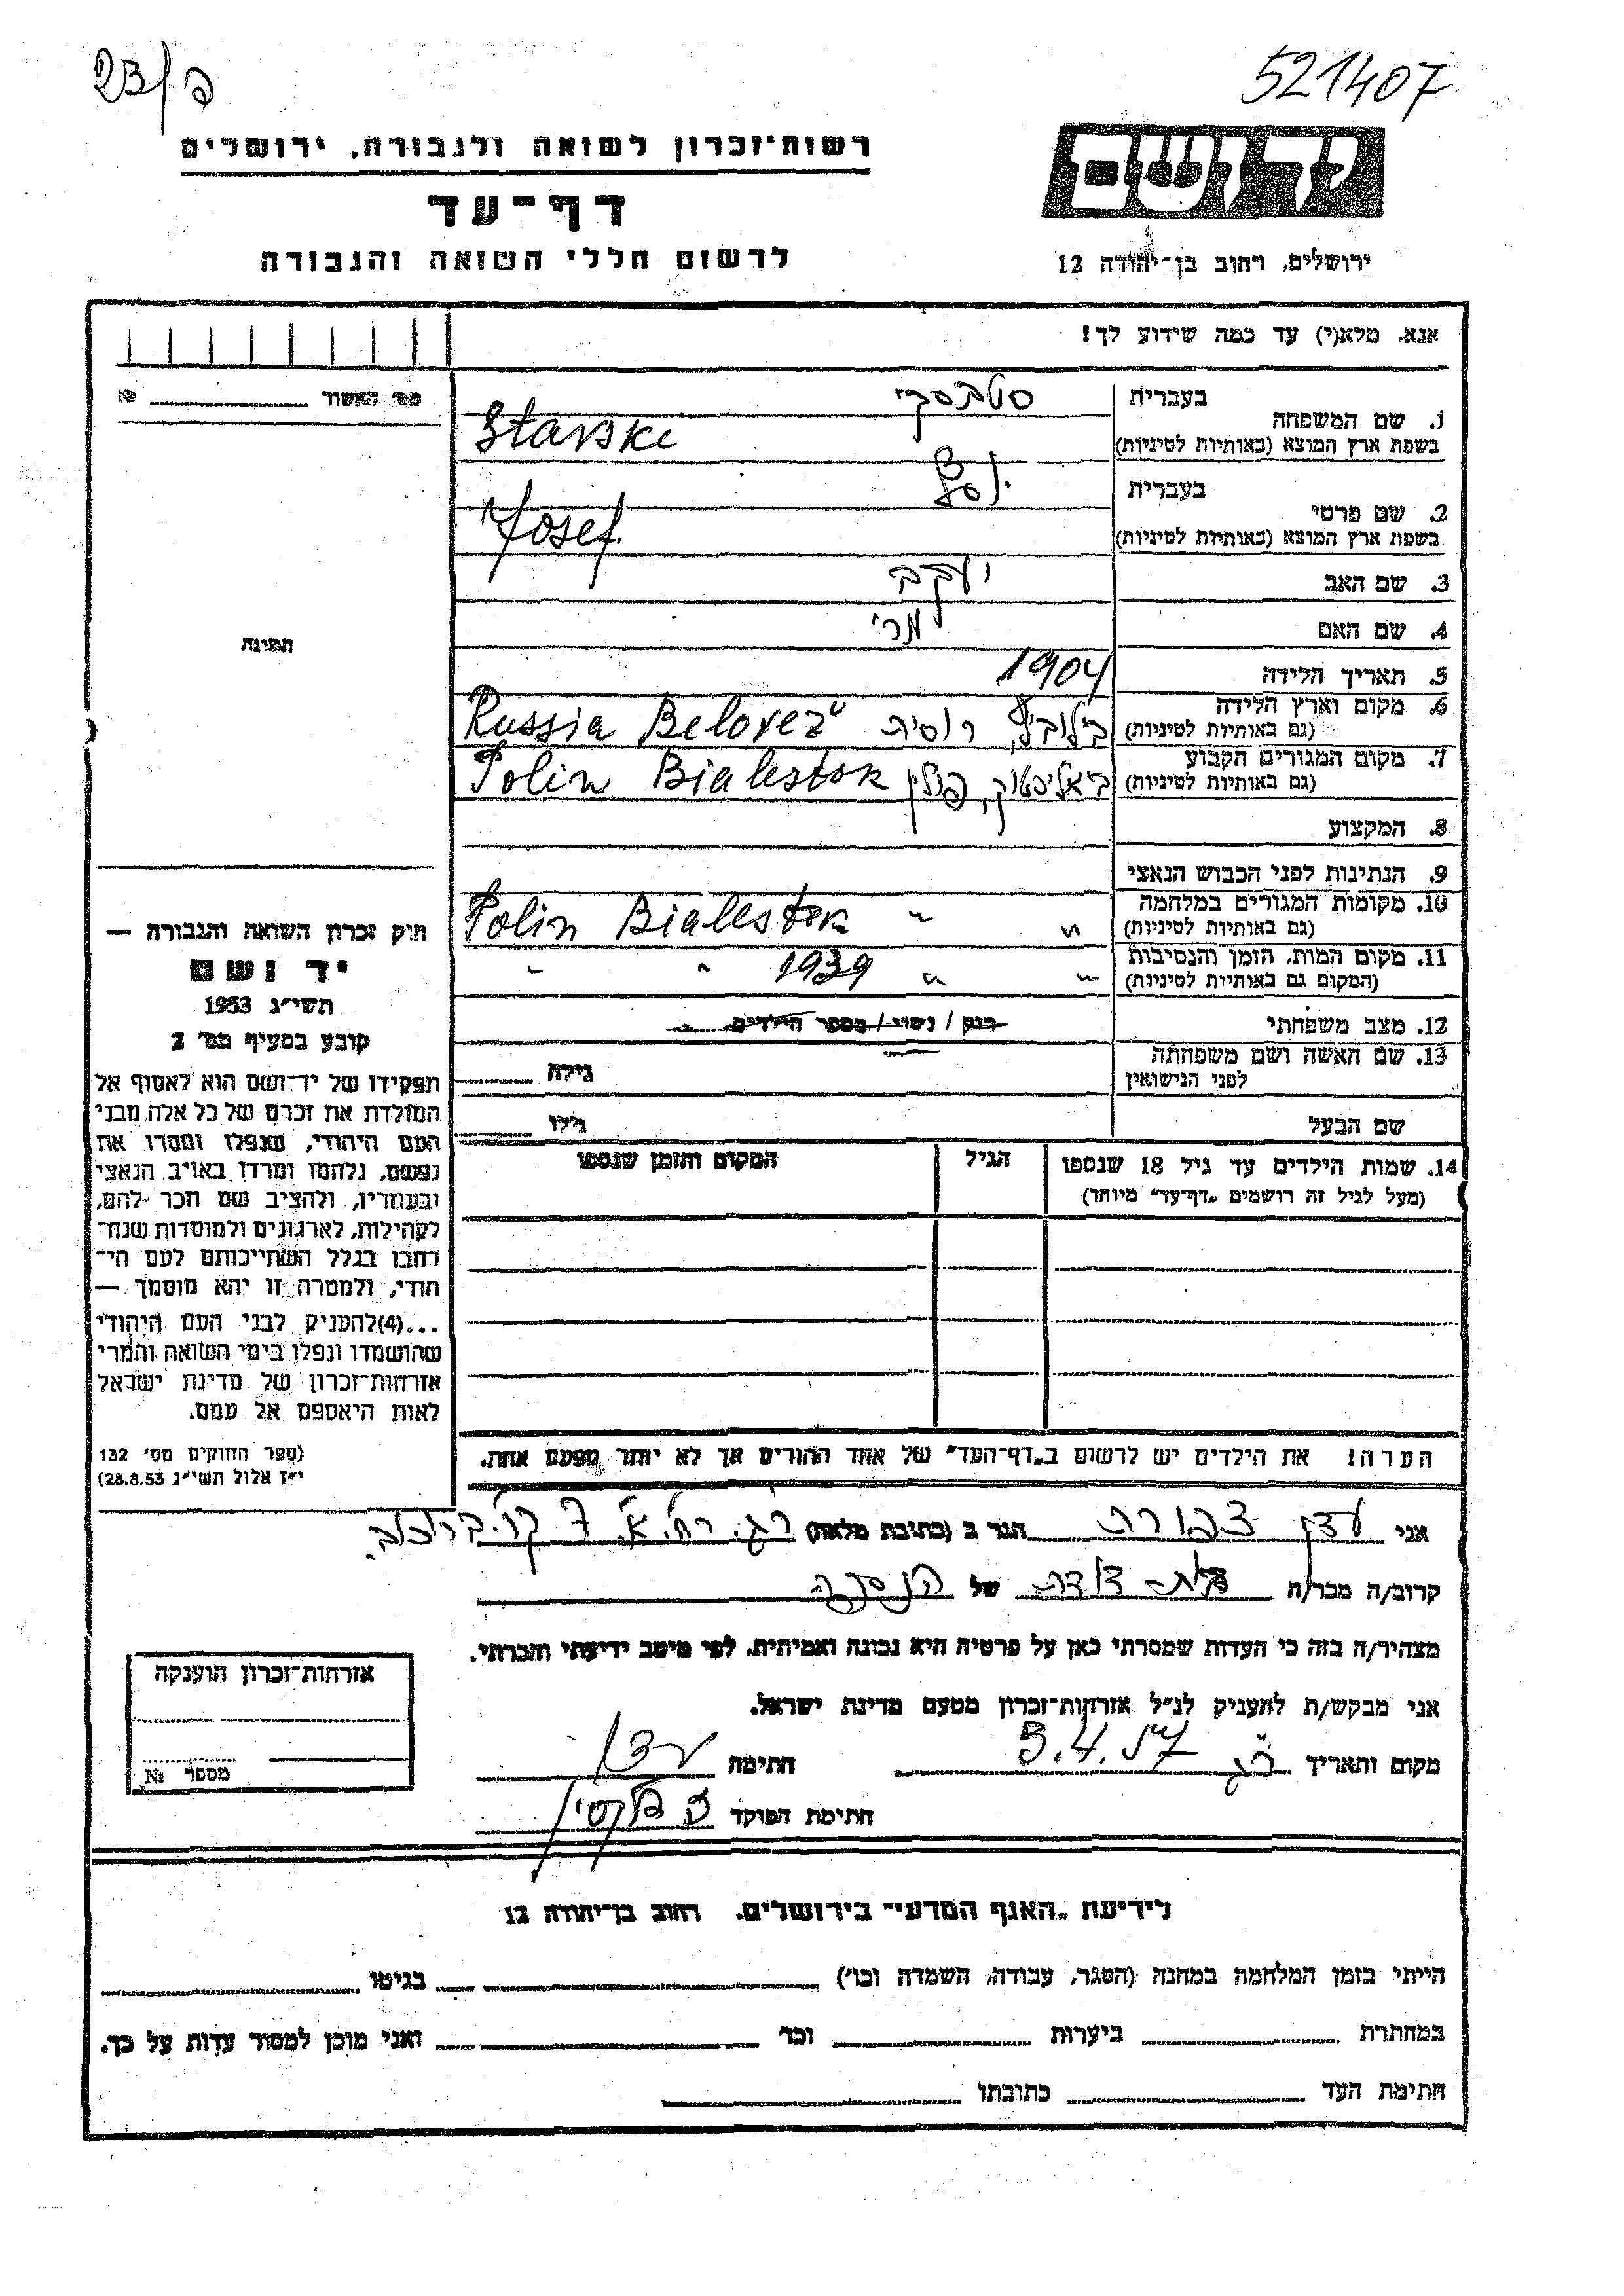 521407
רשות־זכרון לשואה ולגבורה, ירושלים
דף־עד
לרשום חללי השואה והגבורה
יד ושם
ירושלים, רחוב בן־יהודה 12
אנא, מלא(י) עד כמה שידוע לך!
מס׳ האשור № 
1. שם המשפחה
בעברית
בשפת ארץ המוצא (באותיות לטיניות)
Starski
2. שם פרטי
בעברית יוסף
בשפת ארץ המוצא (באותיות לטיניות)
Josef
3. שם האב יעקב
4. שם האם
5. תאריך הלידה 1904
6. מקום וארץ הלידה
(גם באותיות לטיניות) רוסיה Russia Belovez
7. מקום המגורים הקבוע
(גם באותיות לטיניות) ביאליסטוק, פולין Polin Bialestok
8. המקצוע
9. הנתינות לפני הכבוש הנאצי
10. מקומות המגורים במלחמה
(גם באותיות לטיניות) " " Polin Bialestok
11. מקום המות, הזמן והנסיבות
(המקום גם באותיות לטיניות) " " 1939 " "
12. מצב משפחתי רווק / נשוי / מספר הילדים
13. שם האשה ושם משפחתה
לפני הנישואין גילה
שם הבעל גילו
14. שמות הילדים עד גיל 18 שנספו הגיל המקום והזמן שנספו
(מעל לגיל זה רושמים „דף־עד״ מיוחד)
הערה: את הילדים יש לרשום ב„דף־העד״ של אחד ההורים אך לא יותר מפעם אחת.
תמונה
חוק זכרון השואה והגבורה —
יד ושם
תשי״ג 1953
קובע בסעיף מס׳ 2
תפקידו של יד־ושם הוא לאסוף אל
המולדת את זכרם של כל אלה מבני
העם היהודי, שנפלו ומסרו את
נפשם, נלחמו ומרדו באויב הנאצי
ובעוזריו, ולהציב שם וזכר להם,
לקהילות, לארגונים ולמוסדות שנח־
רבו בגלל השתייכותם לעם הי־
הודי, ולמטרה זו יהא מוסמך —
...(4)להעניק לבני העם היהודי
שהושמדו ונפלו בימי השואה והמרי
אזרחות־זכרון של מדינת ישראל
לאות היאספם אל עמם.
(ספר החוקים מס׳ 132
י״ז אלול תשי״ג 28.8.53)
אני עדן צפורה הגר ב (כתובת מלאה)
קרוב/ה מכר/ה בת דודה של הנספה
מצהיר/ה בזה כי העדות שמסרתי כאן על פרטיה היא נכונה ואמיתית, לפי מיטב ידיעתי והכרתי.
אני מבקש/ת להעניק לנ״ל אזרחות־זכרון מטעם מדינת ישראל.
מקום ותאריך רג 5.4.57 חתימה עדן
חתימת הפוקד
אזרחות־זכרון הוענקה
מספר №
לידיעת „האגף המדעי״ בירושלים, רחוב בן־יהודה 12
הייתי בזמן המלחמה במחנה (הסגר, עבודה, השמדה וכו׳) בגיטו
במחתרת ביערות וכו׳ ואני מוכן למסור עדות על כך.
חתימת העד כתובתו